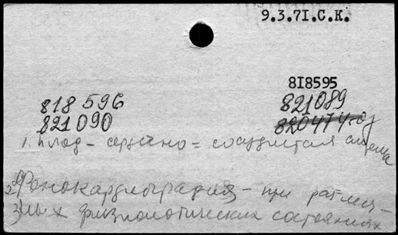 9.3.7I.С.К.
8I8595
818 596 821089
821 090 820474
1. плод – сердечно = сосудистая система
2) Фонокардиография – при различ-
3) ных физиологических состояниях